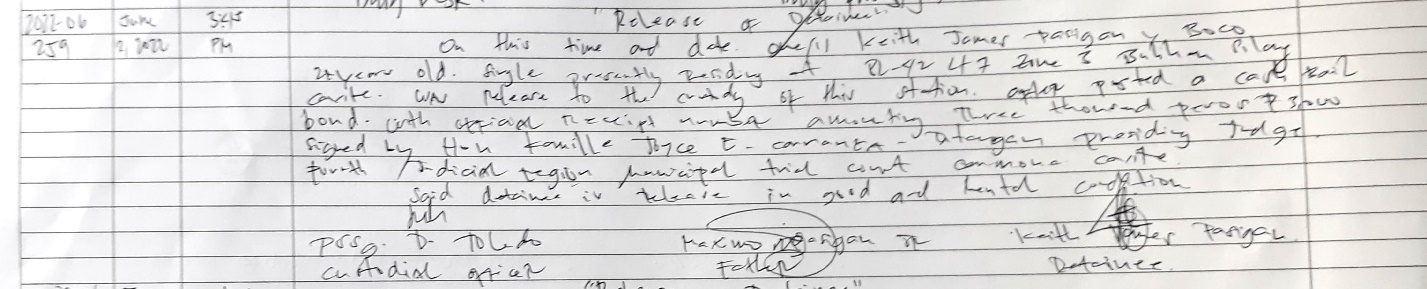 2022-06 June 3:45 "Release of Detainee"
259 2, 2022 PM On this time and date. one(1) Keith James Parigan y Boco
24 years old. Single presently residing at BL-42 LT7 Zone 3 Bulihan Silang
cavite. was release to the custody of this station. after posted a cash bail
bond. with official Receipt number amounting Three thousand pesos ₱ 3000
signed by Hon Camille Joyce E. Carranza - Datangan presiding Judge.
fourth Judicial region Municipal trial court carmona cavite.
Said detainee is release in good and mental condition
PSSg. D. Toledo Maximo Parigan Jr Keith James Parigan
custodial officer Father Detainee.